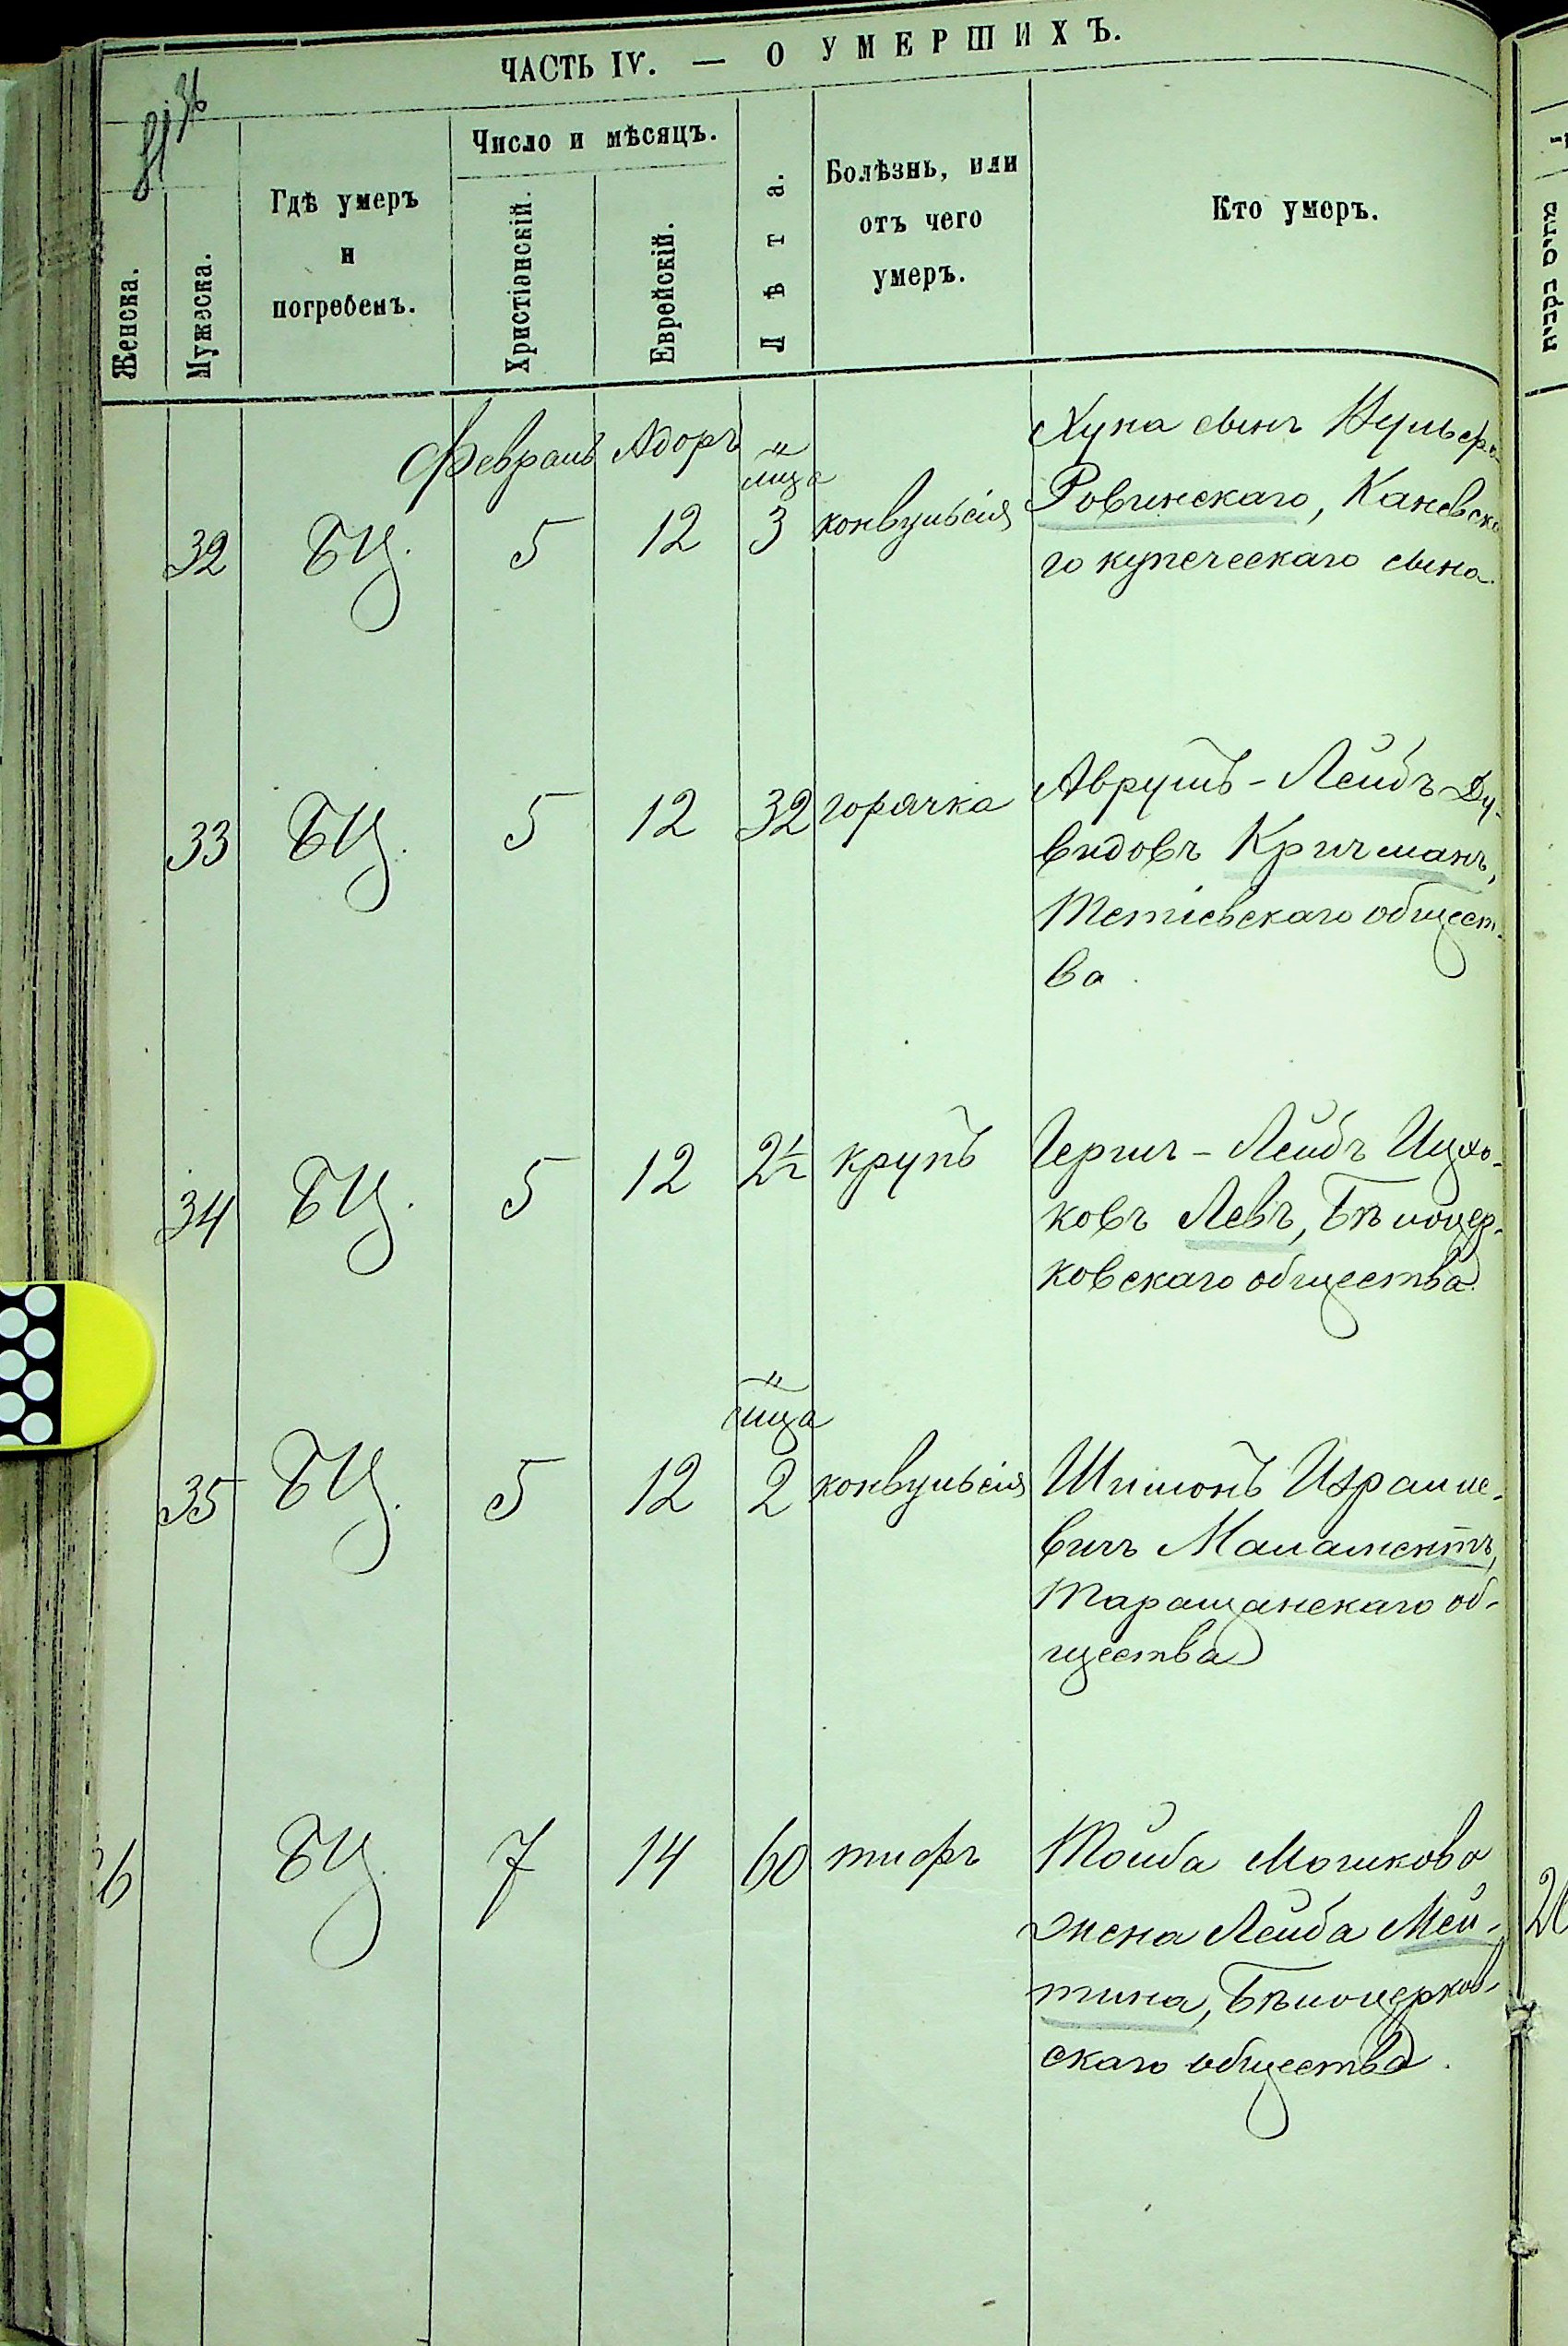 ЧАСТЬ IV. — О УМЕРШИХЪ.
Женска.
Мужеска.
Гдѣ умеръ
и
погребенъ.
Число и мѣсяцъ.
Христіанскій.
Еврейскій.
Лѣта.
Болѣзнь, или
отъ чего
умеръ.
Кто умеръ.
Февраль Адоръ
м-ца
32 БЦ. 5 12 3 конвульсія
сынъ
Ровинскаго, Каневска
го купеческаго сына.
33 БЦ. 5 12 32 горячка
Аврумъ-Лейбъ Ду-
видовъ Кричманъ,
Тетіевскаго общест-
ва.
34 БЦ. 5 12 2½ крупъ
Гершъ-Лейбъ Ицхо-
ковъ Левъ, Бѣлоцер-
ковскаго общества.
м-ца
35 БЦ. 5 12 2 конвульсія
Шимонъ Израиле-
вичъ Маламентъ,
Таращанскаго об-
щества
6 БЦ. 7 14 60 тифъ
Тойба Мошкова
жена Лейба Мей-
тина, Бѣлоцерков-
скаго общества.